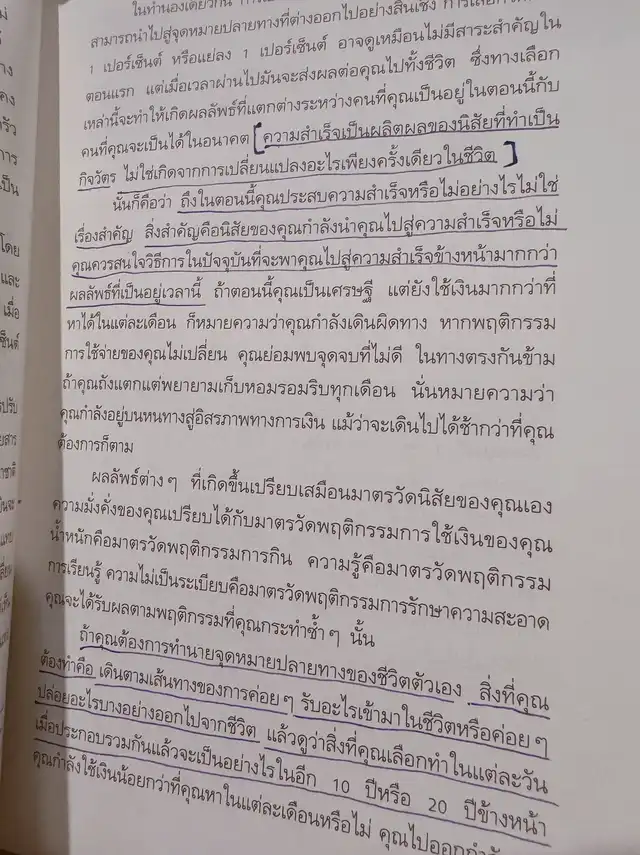 ในทำนองเดียวกัน
สามารถนำไปสู่จุดหมายปลายทางที่ต่างออกไปอย่างสิ้นเชิง การเลือก
1 เปอร์เซ็นต์ หรือแย่ลง 1 เปอร์เซ็นต์ อาจดูเหมือนไม่มีสาระสำคัญใน
ตอนแรก แต่เมื่อเวลาผ่านไปมันจะส่งผลต่อคุณไปทั้งชีวิต ซึ่งทางเลือก
เหล่านี้จะทำให้เกิดผลลัพธ์ที่แตกต่างระหว่างคนที่คุณเป็นอยู่ในตอนนี้กับ
คนที่คุณจะเป็นได้ในอนาคต [ความสำเร็จเป็นผลิตผลของนิสัยที่ทำเป็น
กิจวัตร ไม่ใช่เกิดจากการเปลี่ยนแปลงอะไรเพียงครั้งเดียวในชีวิต]
นั่นก็คือว่า ถึงในตอนนี้คุณประสบความสำเร็จหรือไม่อย่างไรไม่ใช่
เรื่องสำคัญ สิ่งสำคัญคือนิสัยของคุณกำลังนำคุณไปสู่ความสำเร็จหรือไม่
คุณควรสนใจวิธีการในปัจจุบันที่จะพาคุณไปสู่ความสำเร็จข้างหน้ามากกว่า
ผลลัพธ์ที่เป็นอยู่เวลานี้ ถ้าตอนนี้คุณเป็นเศรษฐี แต่ยังใช้เงินมากกว่าที่
หาได้ในแต่ละเดือน ก็หมายความว่าคุณกำลังเดินผิดทาง หากพฤติกรรม
การใช้จ่ายของคุณไม่เปลี่ยน คุณย่อมพบจุดจบที่ไม่ดี ในทางตรงกันข้าม
ถ้าคุณถังแตกแต่พยายามเก็บหอมรอมริบทุกเดือน นั่นหมายความว่า
คุณกำลังอยู่บนหนทางสู่อิสรภาพทางการเงิน แม้ว่าจะเดินไปได้ช้ากว่าที่คุณ
ต้องการก็ตาม
ผลลัพธ์ต่าง ๆ ที่เกิดขึ้นเปรียบเสมือนมาตรวัดนิสัยของคุณเอง
ความมั่งคั่งของคุณเปรียบได้กับมาตรวัดพฤติกรรมการใช้เงินของคุณ
น้ำหนักคือมาตรวัดพฤติกรรมการกิน ความรู้คือมาตรวัดพฤติกรรม
การเรียนรู้ ความไม่เป็นระเบียบคือมาตรวัดพฤติกรรมการรักษาความสะอาด
คุณจะได้รับผลตามพฤติกรรมที่คุณกระทำซ้ำ ๆ นั้น
ถ้าคุณต้องการทำนายจุดหมายปลายทางของชีวิตตัวเอง สิ่งที่คุณ
ต้องทำคือ เดินตามเส้นทางของการค่อย ๆ รับอะไรเข้ามาในชีวิตหรือค่อย ๆ
ปล่อยอะไรบางอย่างออกไปจากชีวิต แล้วดูว่าสิ่งที่คุณเลือกทำในแต่ละวัน
เมื่อประกอบรวมกันแล้วจะเป็นอย่างไรในอีก 10 ปีหรือ 20 ปีข้างหน้า
คุณกำลังใช้เงินน้อยกว่าที่คุณหาในแต่ละเดือนหรือไม่ คุณไปออกกำ